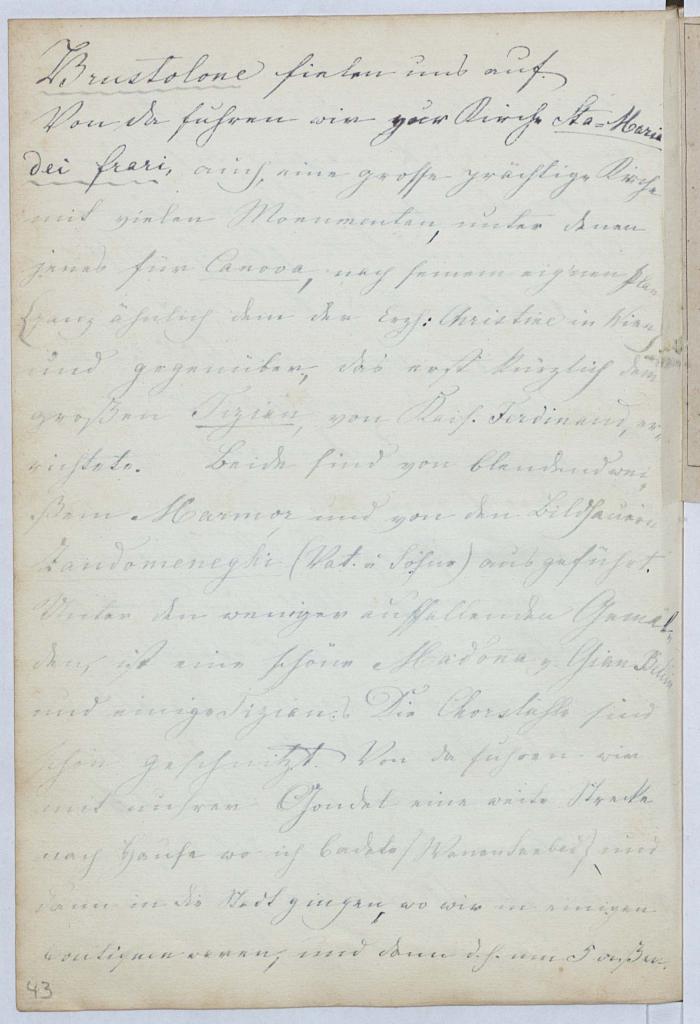 Brustolone fielen uns auf.
Von da fuhren wir zur Kirche Sta=Maria
dei frari, auch eine grosse prächtige Kirche
mit vielen Monumenten, unter denen
jenes für Canova, nach seinem eignen Plan
(ganz ähnlich dem der Erzh: Christine in Wien)
und gegenüber, das erst kürzlich dem
großen Tizian, von Kais. Ferdinand, er-
richtete. Beide sind von blendend wei-
ßem Marmor und von den Bildhauern
Zandomeneghi (Vat. u Söhne) ausgeführt.
Unter den weniger auffallenden Gemäl-
den, ist eine schöne Madona v Gian Bellin
und einige Tizian:s Die Chorstühle sind
schön geschnitzt. Von da fuhren wir
mit unsrer Gondel eine weite Strecke
nach Hause wo ich badete (Wanenseebad) und
dann in die Stadt gingen, wo wir in einigen
waren, und dann d.h. um 5 aßen.
43